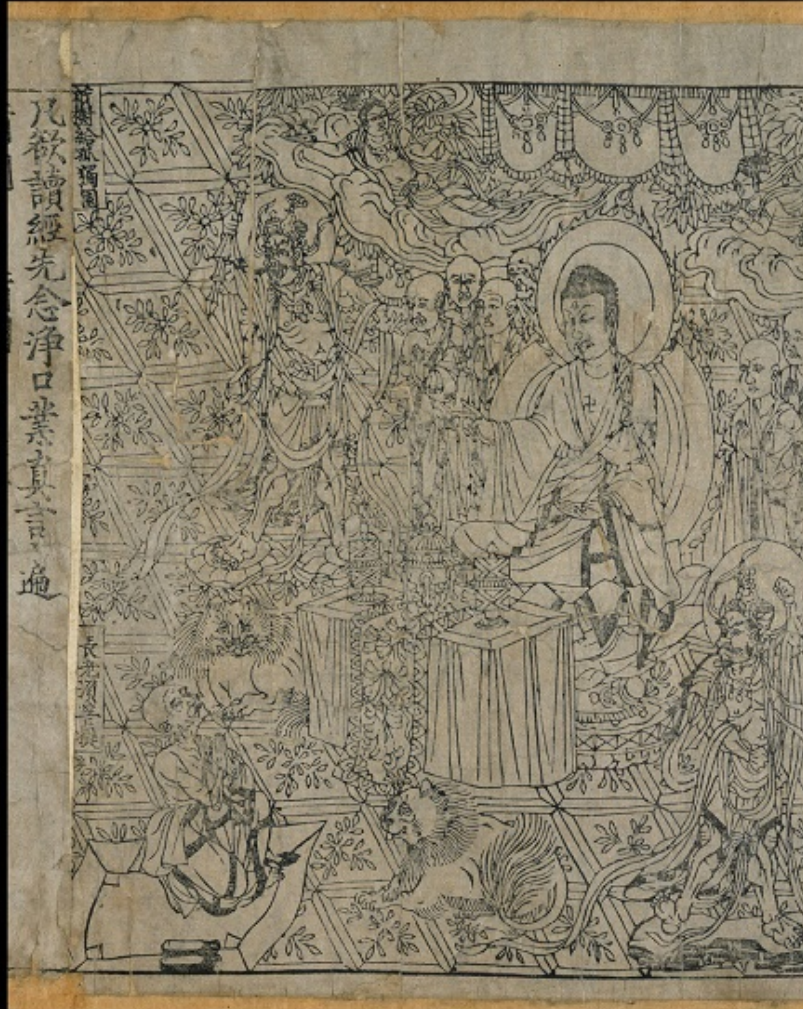 祇樹給孤獨園
長老須菩提
凡欲讀經先念浄口業真言一遍